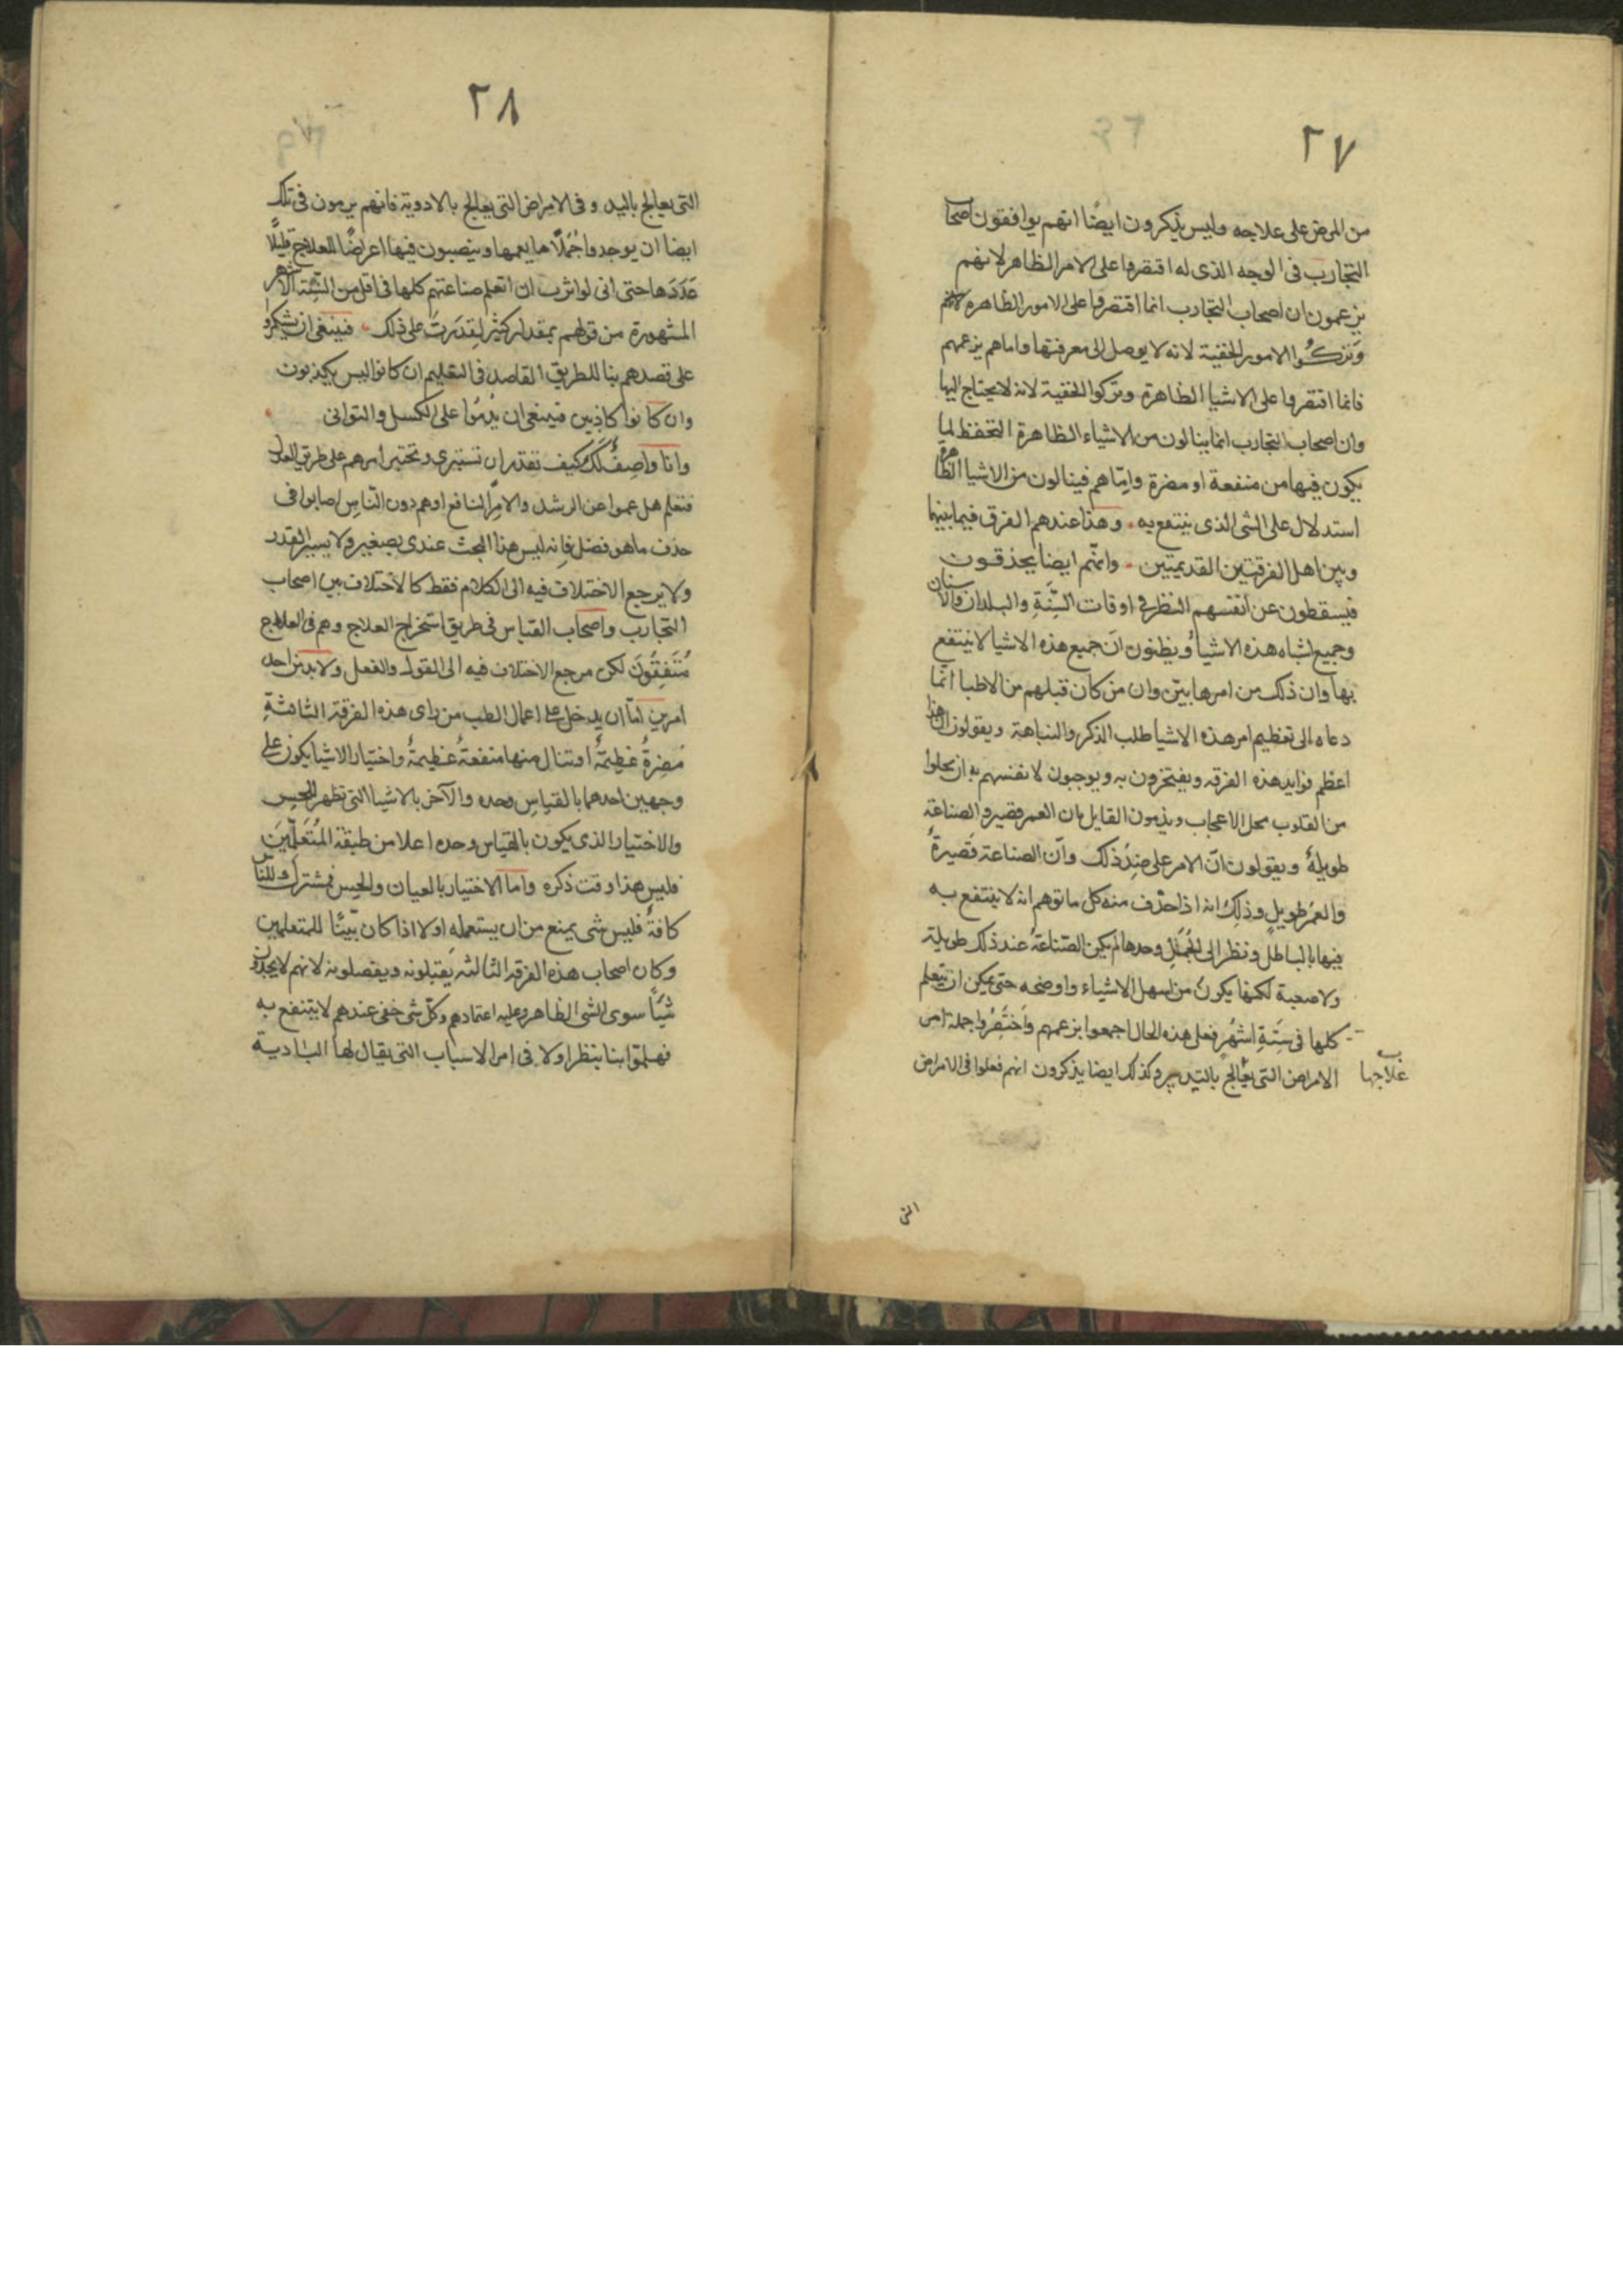 ٢٧
من المرض على علاجه وليس يذكرون ايضًا انهم يوافقون اصحاب
التجارب فى الوجه الذى له اقتصروا على الامر الظاهر لانهم
يزعمون ان اصحاب التجارب انما اقتصروا على الامور الظاهرة
وتركوا الامور الخفية لانه لا يوصل الى معرفتها واما هم بزعمهم
فانما اقتصروا على الاشيا الظاهرة وتركوا الخفية لانه لا يحتاج اليها
وان اصحاب التجارب انما ينالون من الاشياء الظاهرة التحفظ لما
يكون فيها من منفعة او مضرة وامّا هم فينالون من الاشيا الظاهرة
استدلال على الشى الذى ينتفع به وهذا عندهم الفرق فيما بينهما
وبين اهل الفرقتين القديمتين وانّهم ايضا يحذقون
فيسقطون عن انفسهم النظر فى اوقات السَّنَةِ والبلدان والاسنان
وجميع اشباه هذه الاشيا ويظنون ان جميع هذه الاشيا لا ينتفع
بها وان ذلك من امرها بيّن وان من كان قبلهم من الاطبا انّما
دعاه الى تعظيم امر هذه الاشيا طلب الذكر والنباهة ويقولون ان هذا
اعظم فوايد هذه الفرقه ويفتخرون به ويوجبون لانفسهم به ان يحلوا
من القلوب محل الاعجاب ويذمون القايل بان العمر قصير والصناعة
طويلةٌ ويقولون انّ الامر على ضِدِّ ذلك وانّ الصناعة قَصيرةٌ
والعمُر طويل وذلك انه اذا حذف منه كل ما توهم انه لا ينتفع به
فيها بالباطل ونظر الى الجُمَلِ وحدها لم يكن الصناعةُ عند ذلك طويلة
ولا صعبة لكنها يكونُ من اسهل الاشياء واوضحه حتى يمكن ان يتعلم
كلها فى ستّةِ اشهُرٍ فعلى هذه الحال اجمعوا بزعمهم واختَصُروا جملة امر
الامراض التى يعُالج بالتدبير وكذلك ايضا يذكرون انهم فعلوا فى الامراض
علاجها
التى
٢٨
التى يعالج باليد وفى الامراض التى يعالج بالادوية فانهم يرمون فى تلك
ايضا ان يوجدوا جُمَلًا ما يعمها وينصبون فيها اعراضًا للعلاج قليلًا
عَدَدَها حتى انى لو اثرت ان اتعلم صناعتهم كلها فى اقل من الستّة الاشهر
المشهورة من قولهم بمقدار كثير لقدَرتُ على ذلك فينبغى ان يشكروا
على قصدهم بنا للطريق القاصد فى التعليم ان كانوا ليس يكذبون
وان كانوا كاذبين فينبغى ان يُذمّوا على الكسل والتوانى
وانا واصِفٌ لكَ كيف تقدر ان تستبرى وتختبر امرهم على طريق العدل
فتعلم هل عموا عن الرشد والامر النافع او هم دون النّاسِ اصابوا فى
حذف ما هو فضل فانه ليس هذا البحث عندى بصغير ولا يسير القدر
ولا يرجع الاختلاف فيه الى الكلام فقط كالاختلاف بين اصحاب
التجارب واصحاب القياس فى طريق استخراج العلاج وهم فى العلاج
مُتَّفِقُونَ لكن مرجع الاختلاف فيه الى القول والفعل ولا بد من احد
امرين امّا ان يدخل على اعمال الطب من راى هذه الفرقة الثالثةِ
مَضرةٌ عظِيمَةٌ او تنال منها منفعةٌ عظيمةٌ واختيار الاشيا يكون على
وجهين احدهما بالقياسِ وحده والآخر بالاشيا التى تظهر للحسِ
والاختيار الذى يكون بالقياس وحده اعلا من طبقة المُتَعَلِّمِينَ
فليس هذا وقت ذكره واما الاختيار بالعيان والحِس فمشترك للنّاس
كافةً فليس شى يمنع من ان يستعمله اولا اذا كان بيّنًا للمتعلمين
وكان اصحاب هذه الفرقه الثالثه يَقبلونه ويفضلونه لانهم لا يحمدون
شَيًأ سوى الشى الظاهر وعليه اعتمادهم وكلّ شى خفى عندهم لا ينتفع به
فهلمّوا بنا ينظر اولا فى امر الاسباب التى يقال لها البادية